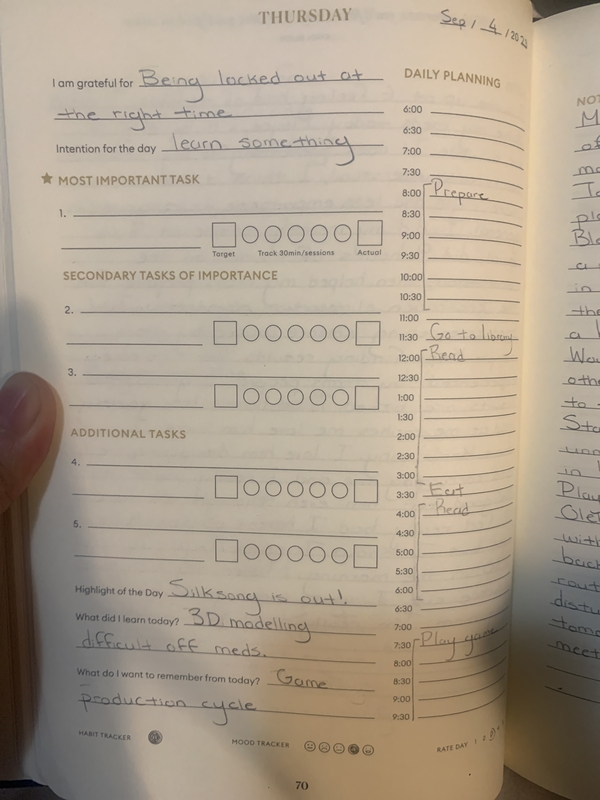 THURSDAY
Sep / 4 / 202
I am grateful for Being locked out at
the right time
Intention for the day learn something
MOST IMPORTANT TASK
1.
Target Track 30min/sessions Actual
SECONDARY TASKS OF IMPORTANCE
2.
3.
ADDITIONAL TASKS
4.
5.
Highlight of the Day Silksong is out!
What did I learn today? 3D modelling
difficult off meds.
What do I want to remember from today? Game
production cycle
HABIT TRACKER
MOOD TRACKER
RATE DAY 1 2 3
70
DAILY PLANNING
6:00
6:30
7:00
7:30
8:00 Prepare
8:30
9:00
9:30
10:00
10:30
11:00
11:30 Go to library
12:00 Read
12:30
1:00
1:30
2:00
2:30
3:00
3:30 Eat
4:00 Read
4:30
5:00
5:30
6:00
6:30
7:00
7:30 Play game
8:00
8:30
9:00
9:30
NOT
M
of
mo
pl
Bl
a
in
the
a
Wo
othe
to
Sta
und
in
Play
Ole
with
back
rout
distu
tomo
meet